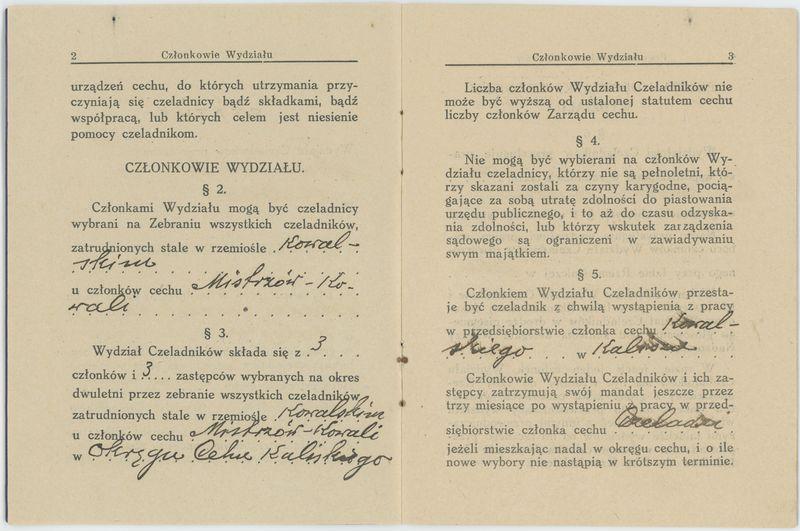 2 Członkowie Wydziału
urządzeń cechu, do których utrzymania przy-
czyniają się czeladnicy bądź składkami, bądź
współpracą, lub których celem jest niesienie
pomocy czeladnikom.
CZŁONKOWIE WYDZIAŁU.
§ 2.
Członkami Wydziału mogą być czeladnicy
wybrani na Zebraniu wszystkich czeladników,
zatrudnionych stale w rzemiośle Kowal-
skim
u członków cechu Mistrzów-Ko-
wali
§ 3.
Wydział Czeladników składa się z 3
członków i 3 zastępców wybranych na okres
dwuletni przez zebranie wszystkich czeladników
zatrudnionych stale w rzemiośle Kowalskim
u członków cechu Mistrzów-Kowali
w Okręgu Cechu Kaliskiego
Członkowie Wydziału 3
Liczba członków Wydziału Czeladników nie
może być wyższą od ustalonej statutem cechu
liczby członków Zarządu cechu.
§ 4.
Nie mogą być wybierani na członków Wy-
działu czeladnicy, którzy nie są pełnoletni, któ-
rzy skazani zostali za czyny karygodne, pocią-
gające za sobą utratę zdolności do piastowania
urzędu publicznego, i to aż do czasu odzyska-
nia zdolności, lub którzy wskutek zarządzenia
sądowego są ograniczeni w zawiadywaniu
swym majątkiem.
§ 5.
Członkiem Wydziału Czeladników przesta-
je być czeladnik z chwilą wystąpienia z pracy
w przedsiębiorstwie członka cechu Kowal-
skiego w
Członkowie Wydziału Czeladników i ich za-
stępcy zatrzymują swój mandat jeszcze przez
trzy miesiące po wystąpieniu z pracy w przed-
siębiorstwie członka cechu
jeżeli mieszkając nadal w okręgu cechu, i o ile
nowe wybory nie nastąpią w krótszym terminie.